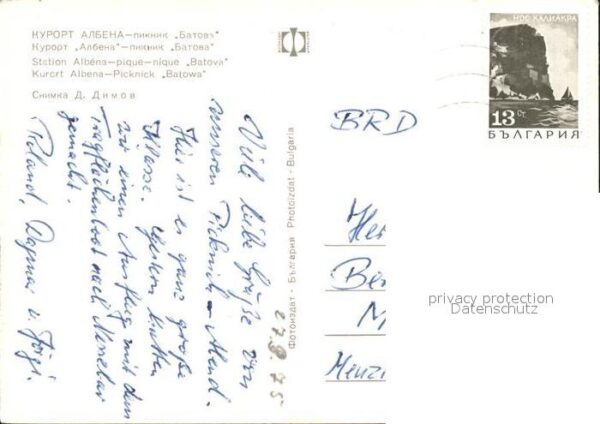 КУРОРТ АЛБЕНА—пикник „Батовъ"
Курорт „Албена"—пикник „Батова"
Station Albéna—pique-nique „Batova"
Kurort Albena—Picknick „Batowa"
Снимка Д. Димов
Viele liebe Grüße von
unserem Picknick-Abend.
Hier ist es ganz große
Klasse. Gestern hatten
wir einen Ausflug mit dem
Tragflächenboot nach Nessebar
gemacht.
Roland, Dagmar u. Jörg.
27.9.75
Фотоиздат - България Photoizdat - Bulgaria
НОС КАЛИАКРА
13 Ст.
БЪЛГАРИЯ
BRD
Her
Be
M
Menzi
privacy protection
Datenschutz